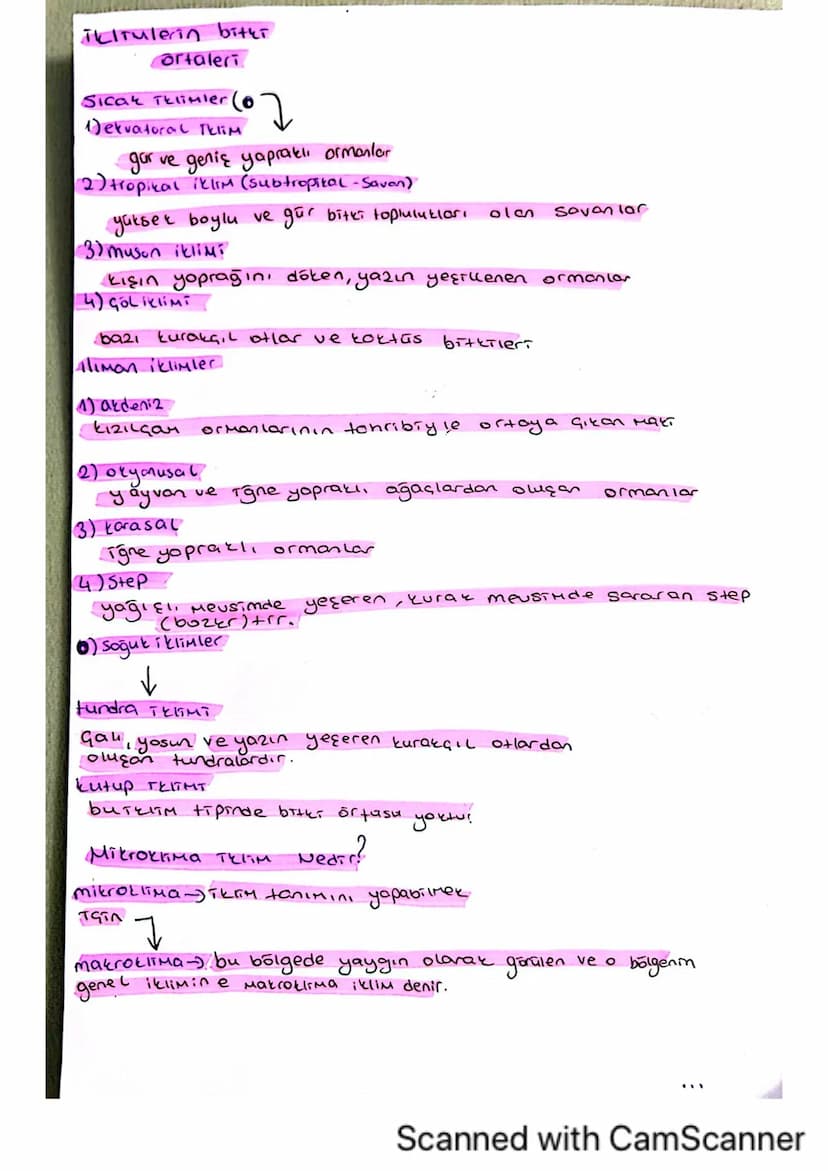 iklimlerin bitki
örtüleri
Sıcak iklimler (
1) ekvatoral iklim
gür ve geniş yapraklı ormanlar
2) tropikal iklim (subtropikal - savan)
yüksek boylu ve gür bitki toplulukları olan savanlar
3) muson iklimi
kışın yaprağını döken, yazın yeşillenen ormanlar
4) çöl iklimi
bazı kurakçıl otlar ve kaktüs bitkileri
ılıman iklimler
1) akdeniz
kızılçam ormanlarının tahribiyle ortaya çıkan maki
2) okyanusal
yayvan ve iğne yapraklı ağaçlardan oluşan ormanlar
3) karasal
iğne yapraklı ormanlar
4) Step
yağışlı mevsimde yeşeren, kurak mevsimde sararan step
(bozkır)tır.
) soğuk iklimler
tundra iklimi
Çalı, yosun ve yazın yeşeren kurakçıl otlardan
oluşan tundralardır.
kutup iklimi
bu iklim tipinde bitki örtüsü yoktur!
Mikroklima iklim Nedir?
mikroklima → iklim tanımını yapabilmek
için
makroklima → bu bölgede yaygın olarak görülen ve o bölgenin
genel iklimin e makroklima iklim denir.
...
Scanned with CamScanner